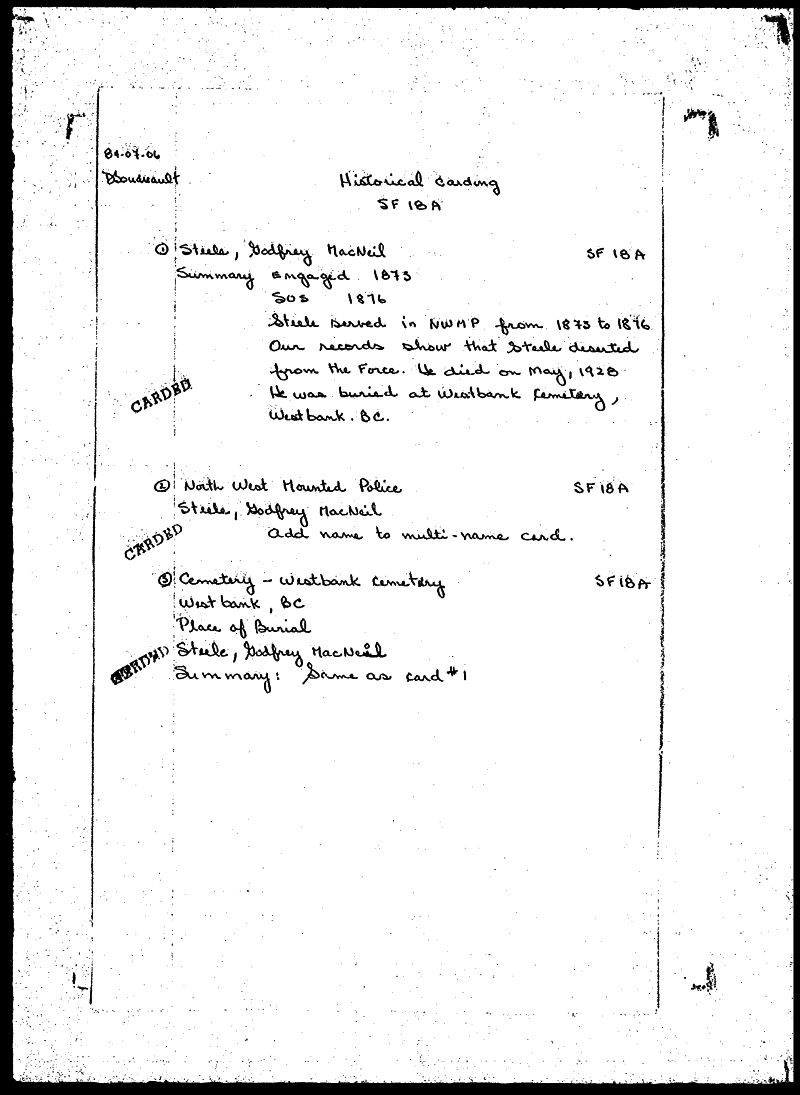 89-07-06
DBoudreault
Historical Carding
SF 18A
① Steele, Godfrey MacNeil SF 18A
Summary Engaged 1873
SOS 1876
Steele served in NWMP from 1873 to 1876
Our records show that Steele deserted
from the Force. He died on May, 1928
He was buried at Westbank Cemetery,
Westbank. BC.
CARDED
② North West Mounted Police SF 18A
Steele, Godfrey MacNeil
Add name to multi-name card.
CARDED
③ Cemetery - Westbank Cemetery SF18A
Westbank, BC
Place of Burial
Steele, Godfrey MacNeil
CARDED
Summary: Same as card #1